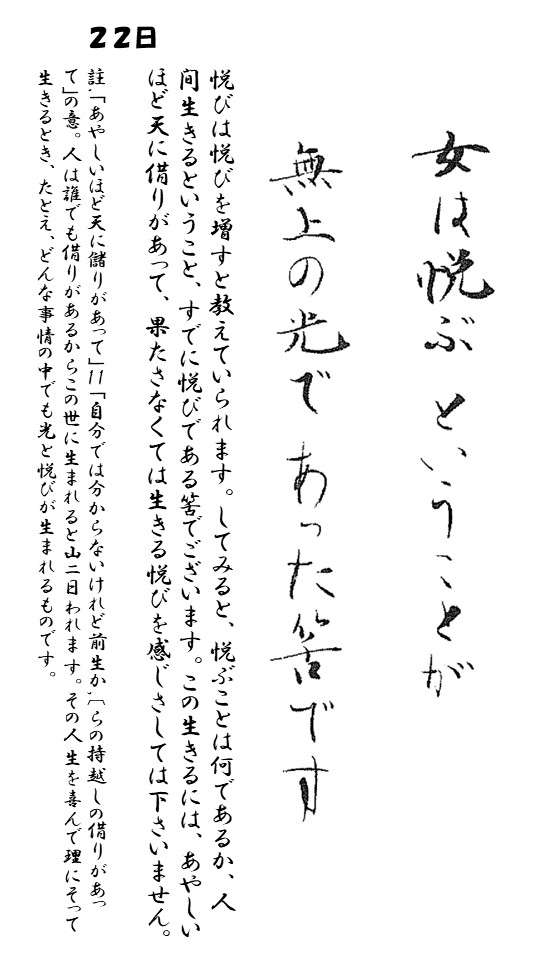 22日
女は悦ぶということが
無上の光であった筈です
悦びは悦びを増すと教えていられます。してみると、悦ぶことは何であるか、人
間生きるということ、すでに悦びである筈でございます。この生きるには、あやしい
ほど天に借りがあって、果たさなくては生きる悦びを感じさしては下さいません。
註.「あやしいほど天に儲りがあって」11「自分では分からないけれど前生か,[らの持越しの借りがあっ
て」の意。人は誰でも借りがあるからこの世に生まれると山二日われます。その人生を喜んで理にそって
生きるとき、たとえ、どんな事情の中でも光と悦びが生まれるものです。